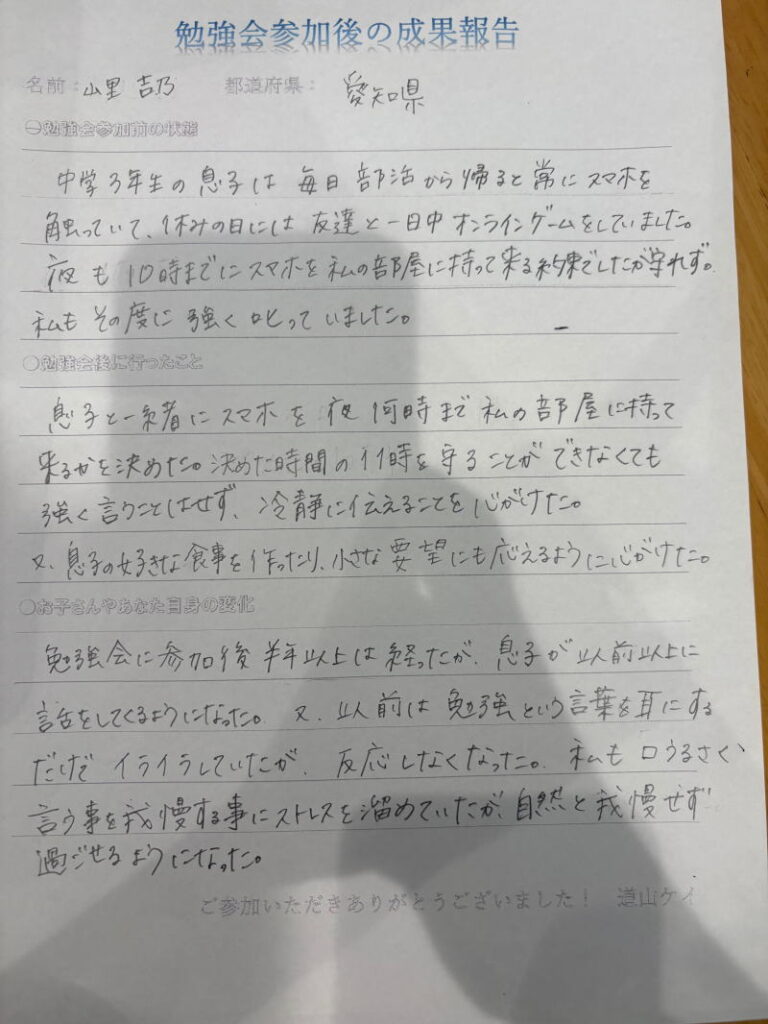 勉強会参加後の成果報告
名前：山里 吉乃　都道府県：愛知県
○勉強会参加前の状態
中学3年生の息子は毎日部活から帰ると常にスマホを
触っていて、休みの日には友達と一日中オンラインゲームをしていました。
夜も10時までにスマホを私の部屋に持って来る約束でしたが守れず。
私もその度に強く叱っていました。
○勉強会後に行ったこと
息子と一緒にスマホを夜何時まで私の部屋に持って
来るかを決めた。決めた時間の11時を守ることができなくても
強く言うことはせず、冷静に伝えることを心がけた。
又、息子の好きな食事を作ったり、小さな要望にも応えるように心がけた。
○お子さんやあなた自身の変化
勉強会に参加後半年以上は経ったが、息子が以前以上に
話をしてくるようになった。又、以前は勉強という言葉を耳にする
だけでイライラしていたが、反応しなくなった。私も口うるさく
言う事を我慢する事にストレスを溜めていたが、自然と我慢せず
過ごせるようになった。
ご参加いただきありがとうございました！　道山ケイ